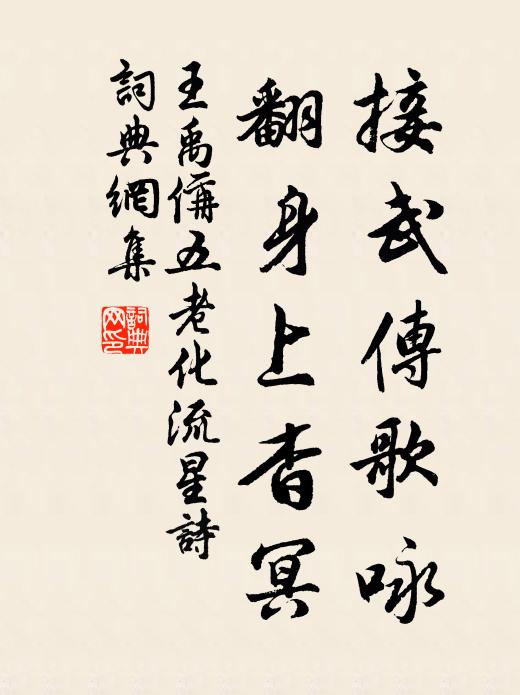 接武傳歌咏
翻身上杳冥
王禹偁五老化流星詩
詞典網集
詞典网印